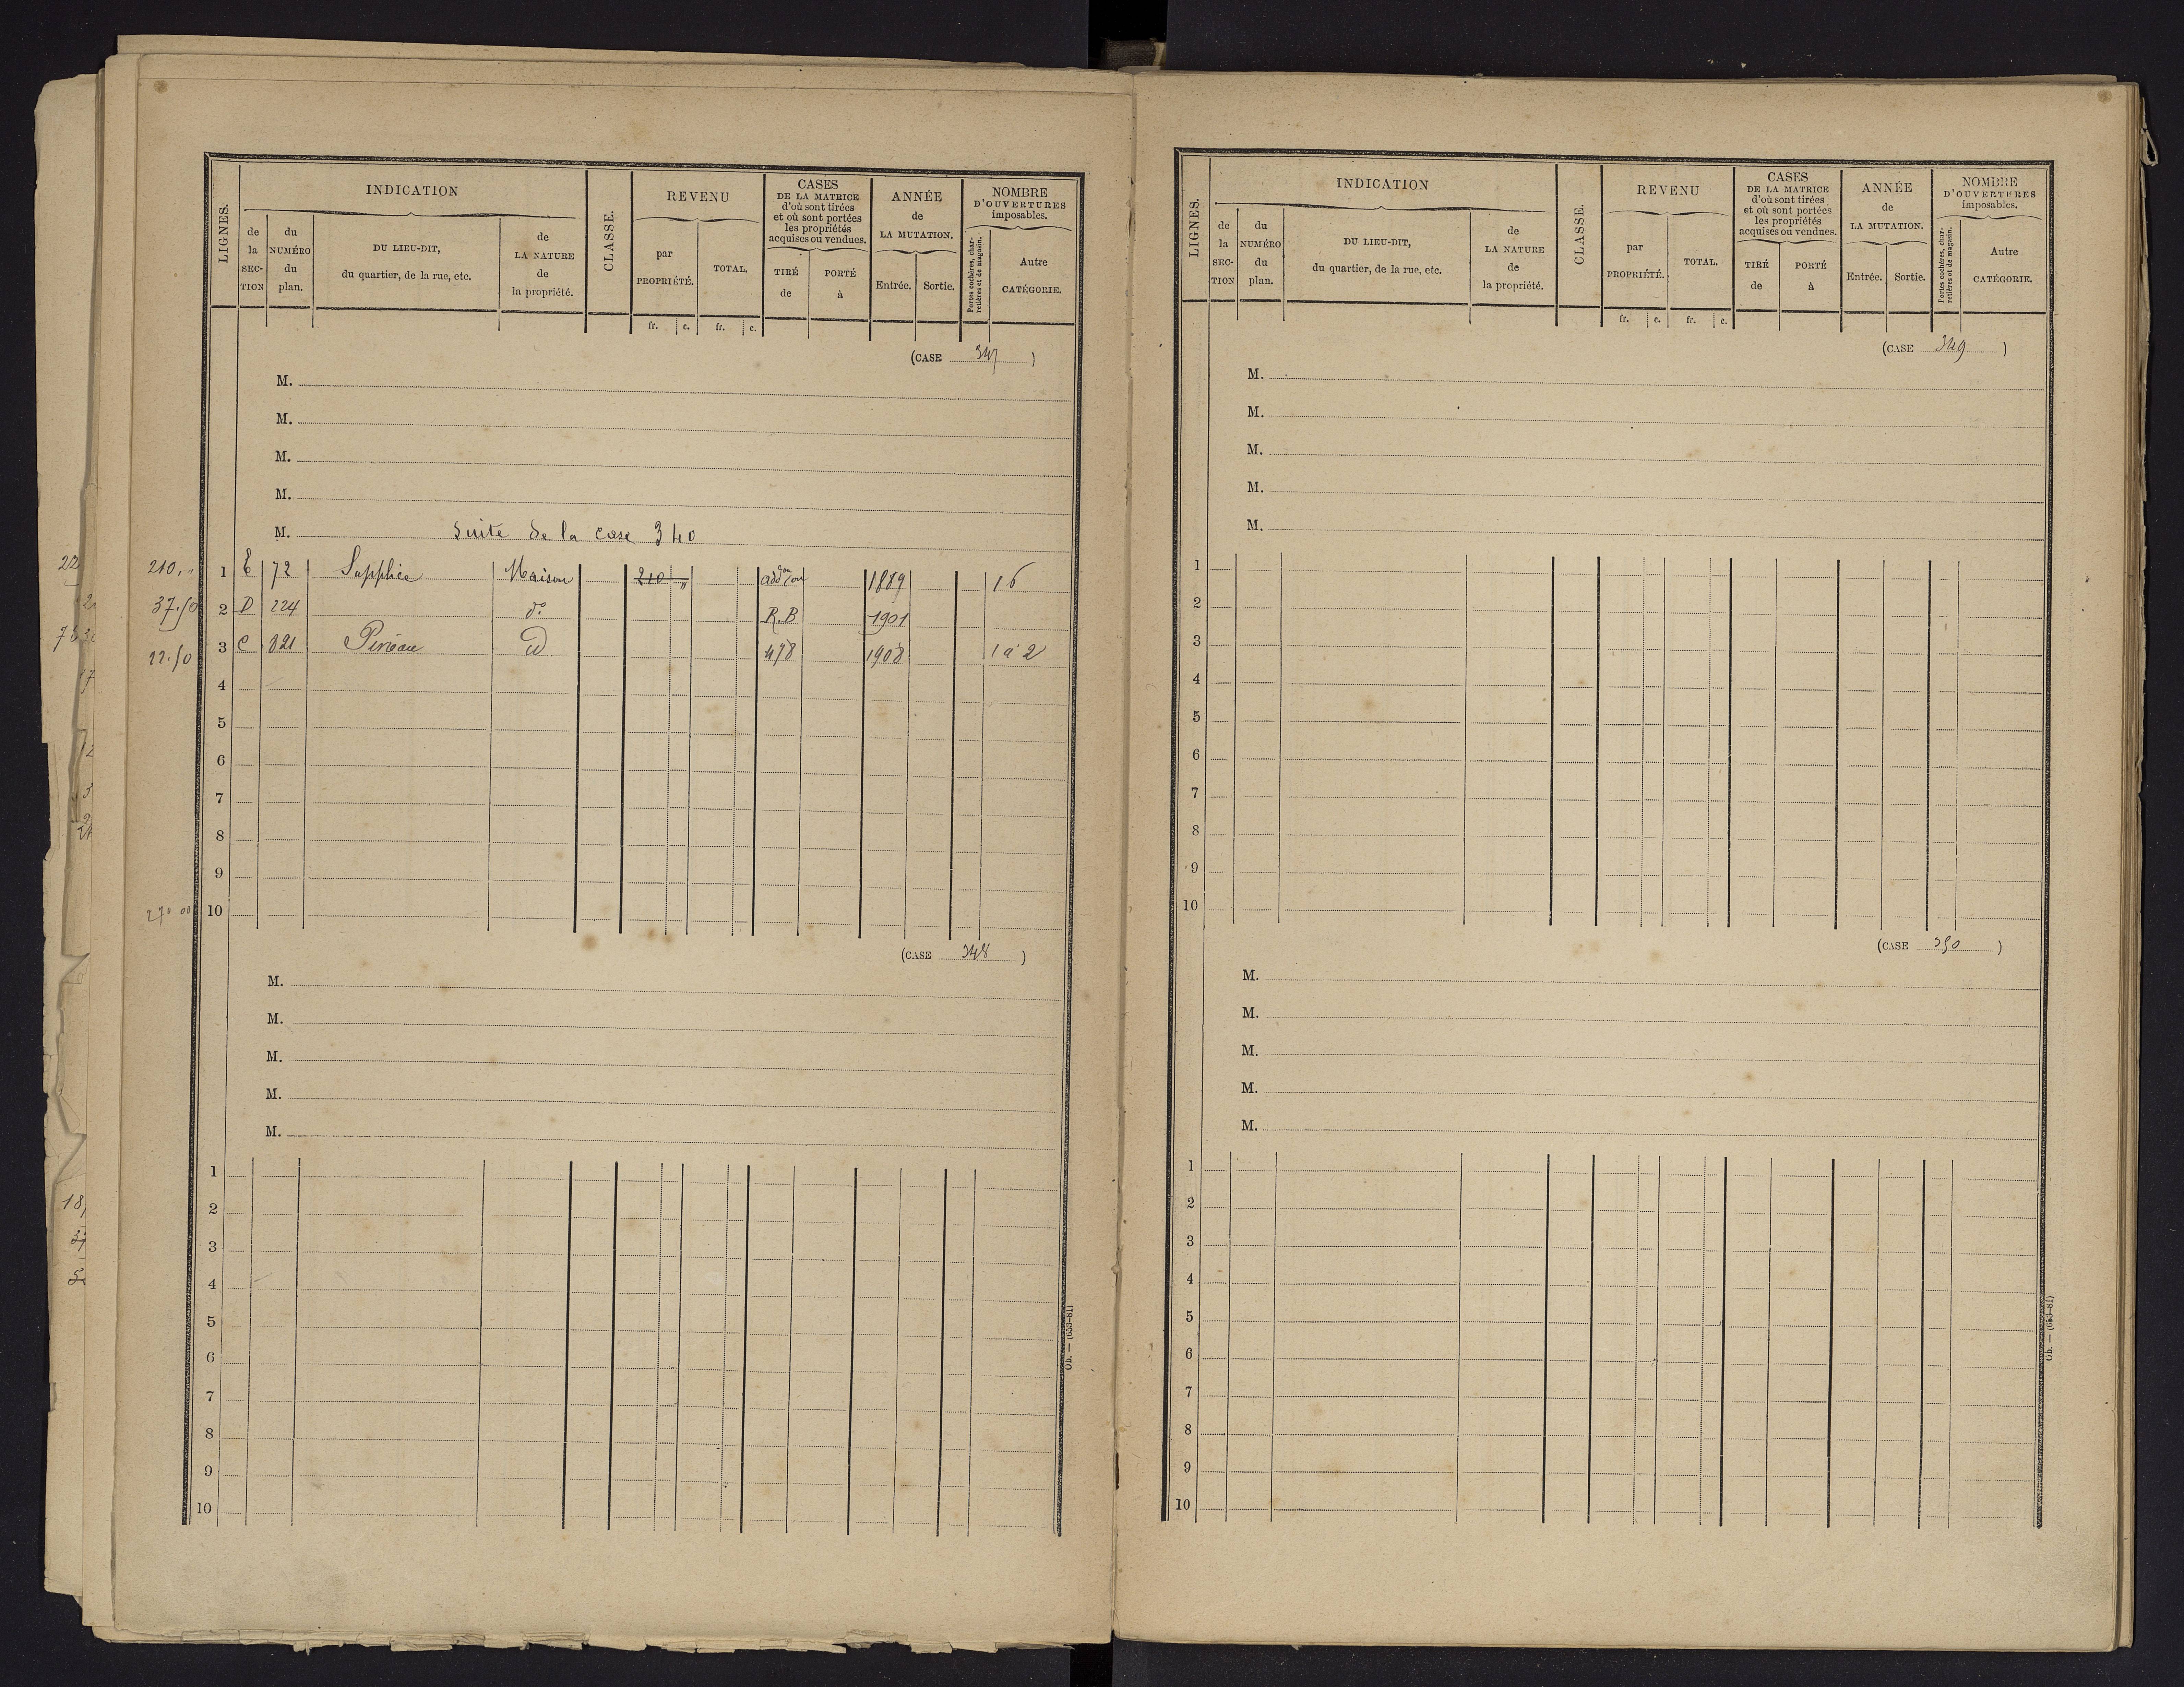 LIGNES.
INDICATION
de la SEC-TION
du NUMÉRO du plan.
DU LIEU-DIT, du quartier, de la rue, etc.
de LA NATURE de la propriété.
CLASSE.
REVENU
par PROPRIÉTÉ.
TOTAL.
fr. c. fr. c.
CASES
DE LA MATRICE
d'où sont tirées
et où sont portées
les propriétés
acquises ou vendues.
TIRÉ de
PORTÉ à
ANNÉE
de
LA MUTATION.
Entrée. Sortie.
NOMBRE
D'OUVERTURES
imposables.
Portes cochères, char-
retières et de magasin.
Autre
CATÉGORIE.
(CASE 347 )
M.
M.
M.
M.
M. Suite de la case 340
210,» 1 E 72 Sapphie Maison 210 » 1889 16
37.50 2 D 224 d° R.B 1901
22.50 3 C 321 id 478 1908 1 à 2
4
5
6
7
8
9
270 00 10
(CASE 348 )
M.
M.
M.
M.
M.
1
2
3
4
5
6
7
8
9
10
Ob. — (653-81)
LIGNES.
INDICATION
de la SEC-TION
du NUMÉRO du plan.
DU LIEU-DIT, du quartier, de la rue, etc.
de LA NATURE de la propriété.
CLASSE.
REVENU
par PROPRIÉTÉ.
TOTAL.
fr. c. fr. c.
CASES
DE LA MATRICE
d'où sont tirées
et où sont portées
les propriétés
acquises ou vendues.
TIRÉ de
PORTÉ à
ANNÉE
de
LA MUTATION.
Entrée. Sortie.
NOMBRE
D'OUVERTURES
imposables.
Portes cochères, char-
retières et de magasin.
Autre
CATÉGORIE.
(CASE 349 )
M.
M.
M.
M.
M.
1
2
3
4
5
6
7
8
9
10
(CASE 350 )
M.
M.
M.
M.
M.
1
2
3
4
5
6
7
8
9
10
Ob. — (653-81)